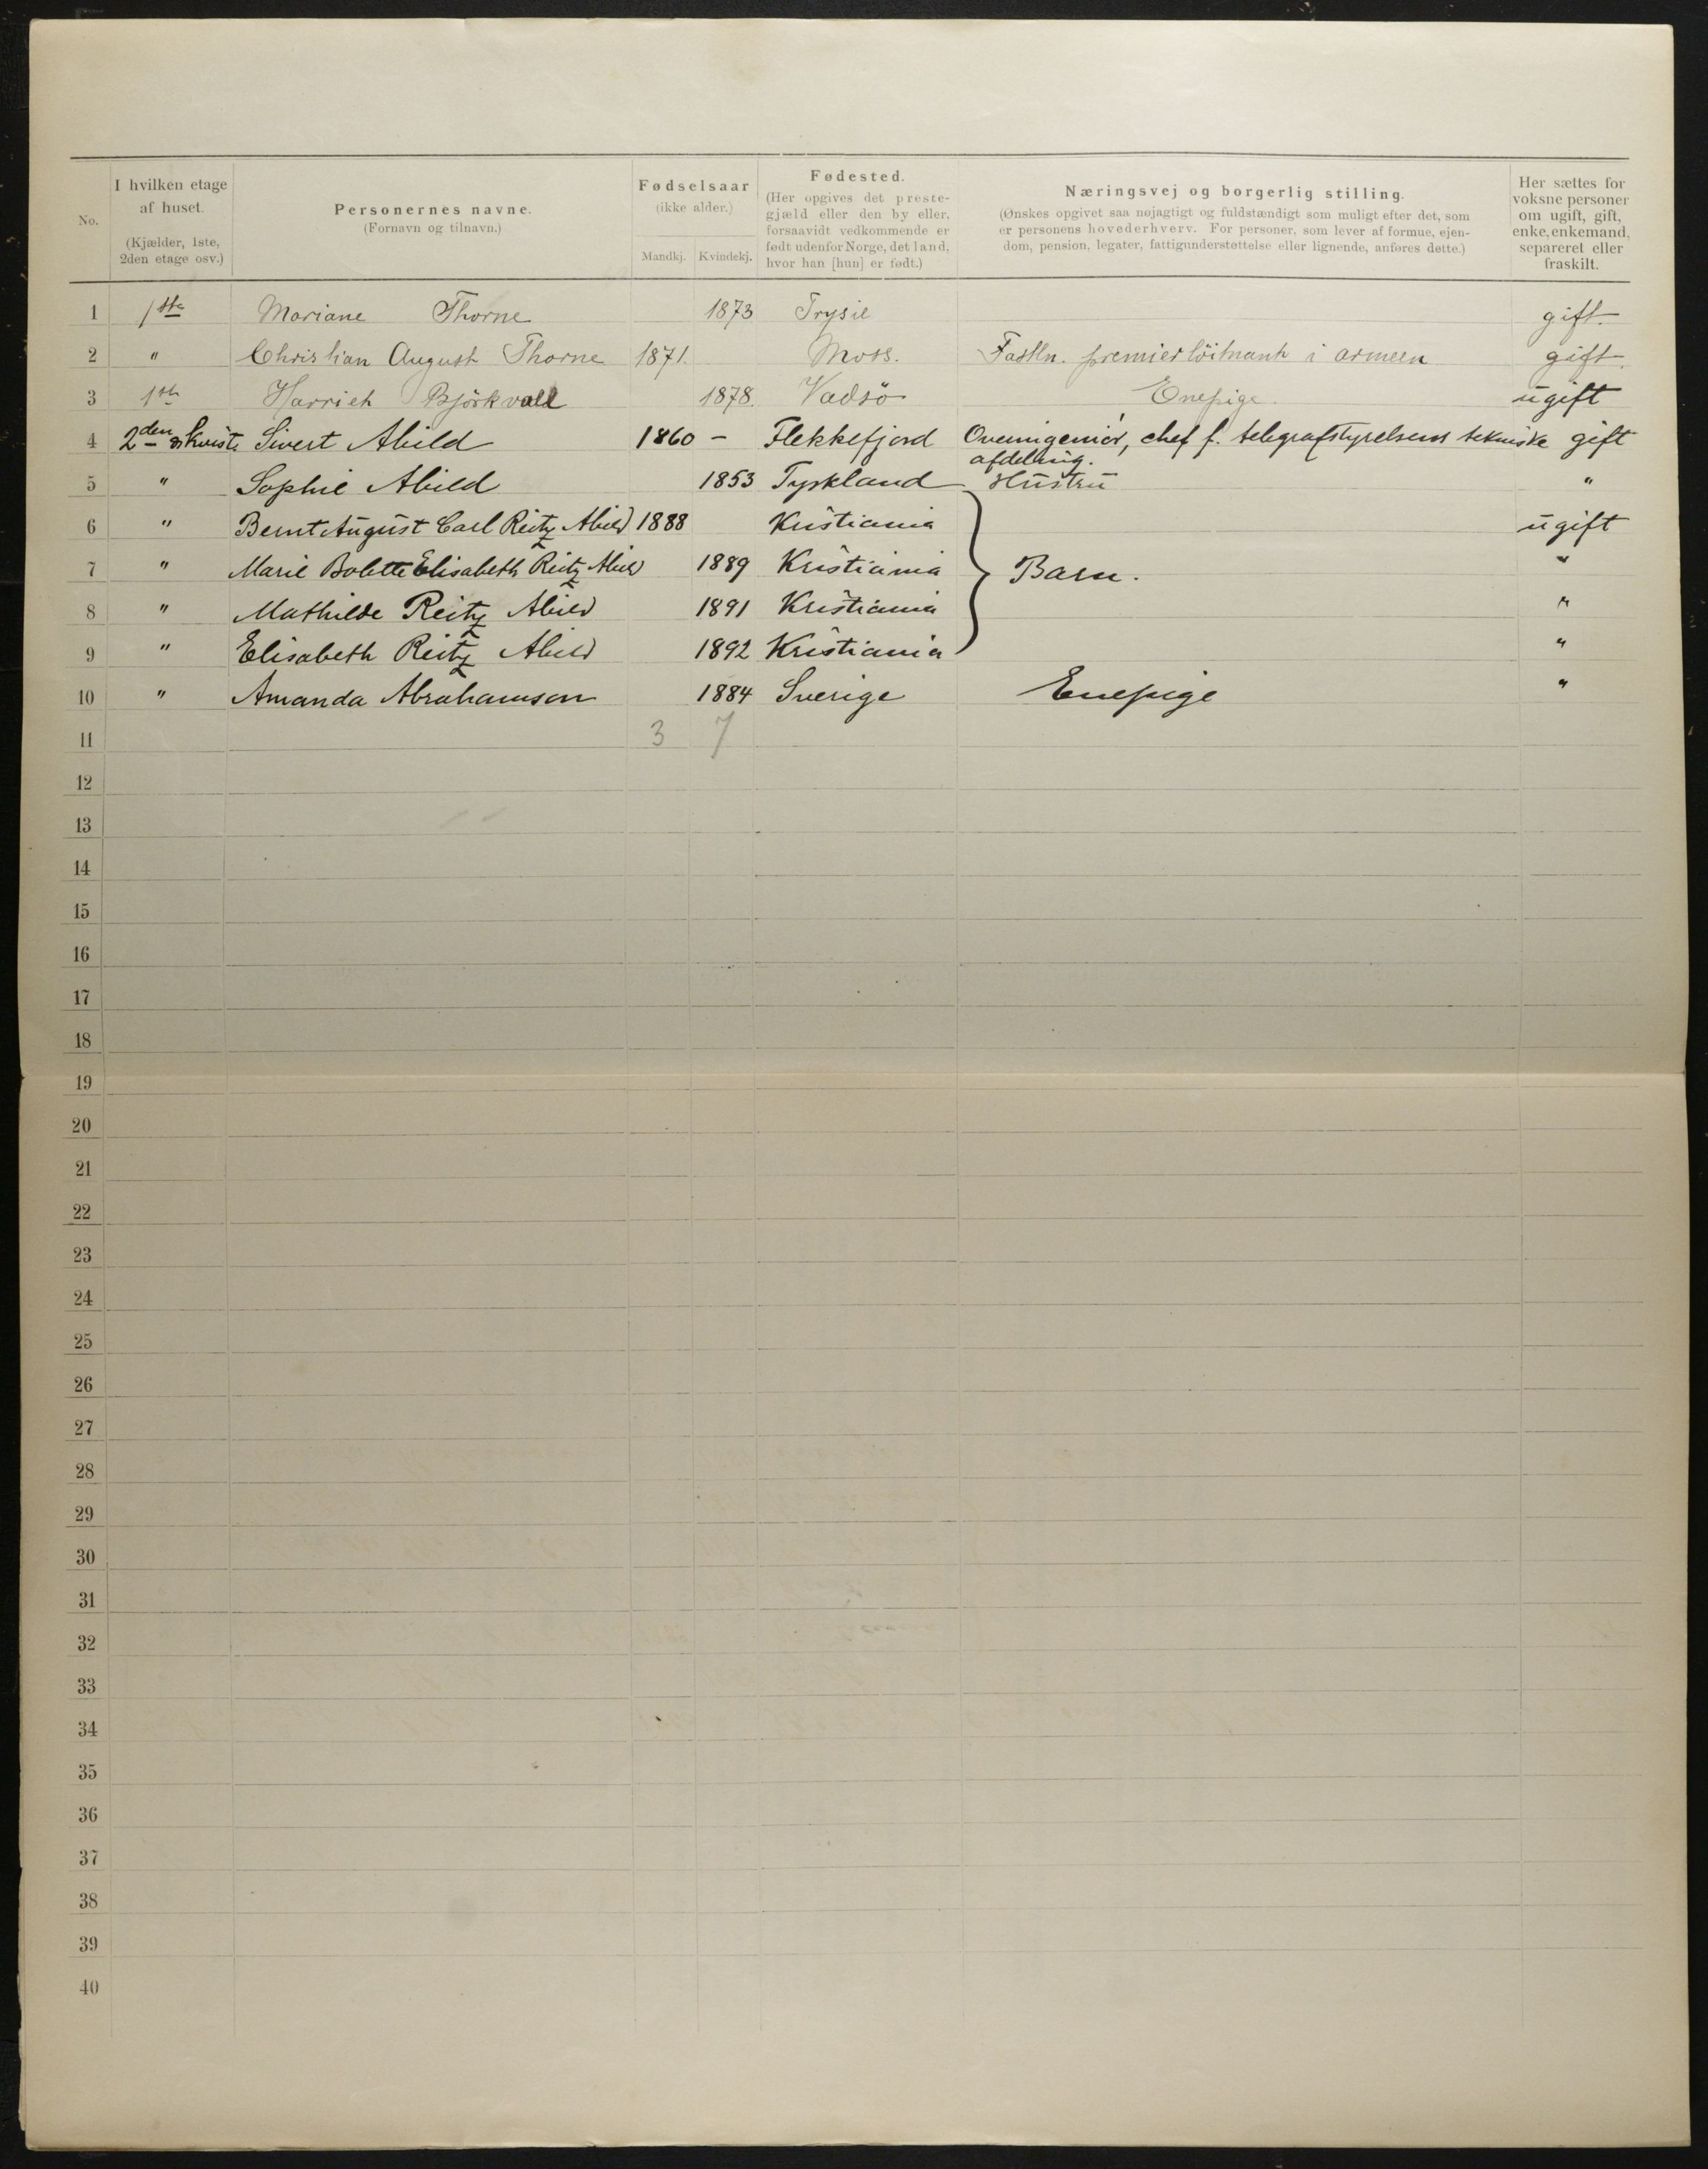 No.
I hvilken etage af huset. (Kjælder, 1ste, 2den etage osv.)
Personernes navne. (Fornavn og tilnavn.)
Fødselsaar (ikke alder.) Mandkj. Kvindekj.
Fødested. (Her opgives det prestegjæld eller den by eller, forsaavidt vedkommende er født udenfor Norge, det land, hvor han [hun] er født.)
Næringsvej og borgerlig stilling. (Ønskes opgivet saa nøjagtigt og fuldstændigt som muligt efter det, som er personens hovederhverv. For personer, som lever af formue, ejendom, pension, legater, fattigunderstøttelse eller lignende, anføres dette.)
Her sættes for voksne personer om ugift, gift, enke, enkemand, separeret eller fraskilt.
1 1ste Mariane Thorne 1873 Trysil gift.
2 " Christian August Thorne 1871. Moss. premierlöitnant i armeen gift.
3 1ste Harriet Björkvall 1878. Vadsö Enepige. ugift
4 2den & kvist Sivert Abild 1860 - Flekkefjord Overingeniør, chef f. telegrafstyrelsens tekniske afdeling. gift
5 " Sophie Abild 1853 Tyskland Hustru "
6 " Bernt August Carl Reitz Abild 1888 Kristiania ugift
7 " Marie Bolette Elisabeth Reitz Abild 1889 Kristiania Barn. "
8 " Mathilde Reitz Abild 1891 Kristiania "
9 " Elisabeth Reitz Abild 1892 Kristiania "
10 " Amanda Abrahamson 1884 Sverige Enepige "
11 3 7
12
13
14
15
16
17
18
19
20
21
22
23
24
25
26
27
28
29
30
31
32
33
34
35
36
37
38
39
40